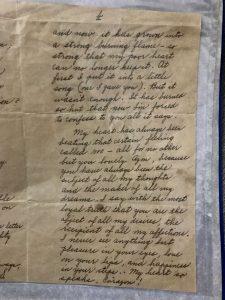 and now it has grown into
a strong burning flame - so
strong that my poor heart
can no longer keep it. At
first I put it into a little
song (one I gave you). But it
wasn't enough. It has burned
so hot that now I'm forced
to confess to you all it says.
My heart has always been
beating that certain feeling
called love - all for no other
but you lovely, because
you have always been the
subject of all my thoughts
and the maker of all my
dreams. I say with the most
loyal truth that you are the
object of all my desires, the
recipient of all my affections.
I never see anything but
pleasure in your eyes, love
on your lips, and happiness
in your steps. My heart so
speaks, Corazon!